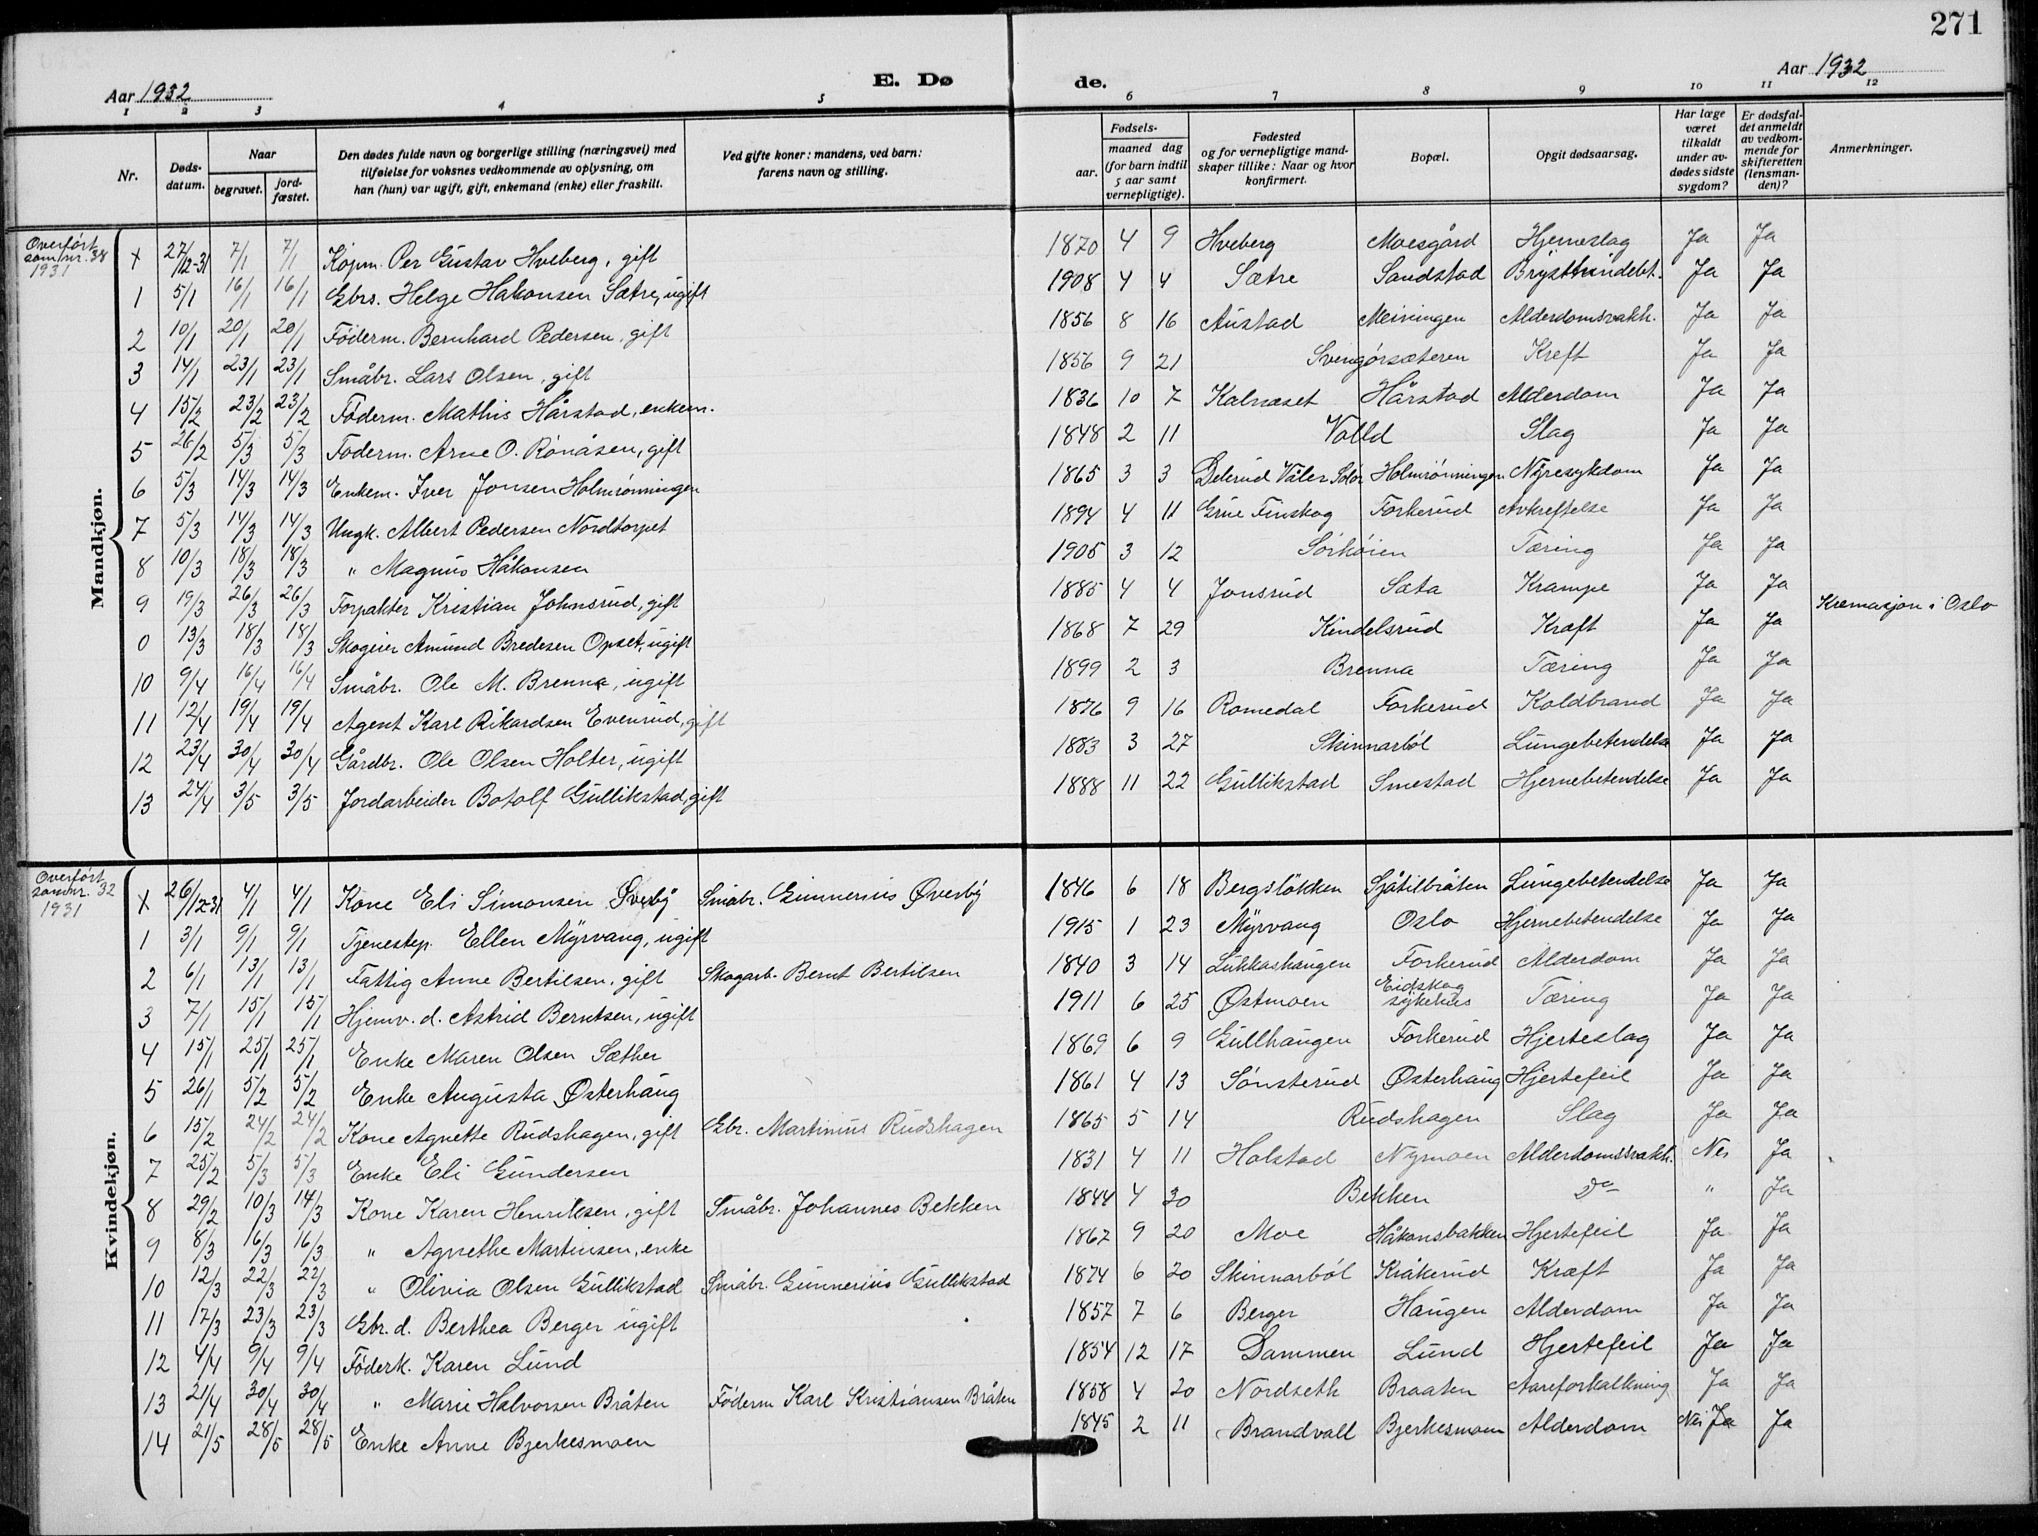 271
Aar 1932 E. Dø de. Aar 1932
1 2 3 4 5 6 7 8 9 10 11 12
Nr. Døds-datum. Naar begravet. jord-fæstet. Den dødes fulde navn og borgerlige stilling (næringsvei) med tilføielse for voksnes vedkommende av oplysning, om han (hun) var ugift, gift, enkemand (enke) eller fraskilt. Ved gifte koner: mandens, ved barn: farens navn og stilling. Fødsels- aar. maaned dag (for barn indtil 5 aar samt vernepligtige). Fødested og for vernepligtige mand-skaper tillike: Naar og hvor konfirmert. Bopæl. Opgit dødsaarsag. Har læge været tilkaldt under av-dødes sidste sygdom? Er dødsfal-det anmeldt av vedkom-mende for skifteretten (lensman-den)? Anmerkninger.
Mandkjøn.
Overført som nr. 38 1931
X 27/12-31 7/1 7/1 Kjøpm. Per Gustav Hveberg, gift 1870 4 9 Hveberg Moesgård Hjerneslag Ja Ja
1 5/1 16/1 16/1 Gbrs. Helge Hakonsen Sætre, ugift 1908 4 4 Sætre Sandstad Brysthindebt. Ja Ja
2 10/1 20/1 20/1 Føderm. Bernhard Pedersen, gift 1856 8 16 Austad Meiningen Alderdomsvakh. Ja Ja
3 14/1 23/1 23/1 Småbr. Lars Olsen, gift 1856 9 21 Svengørsæteren Kreft Ja Ja
4 15/2 23/2 23/2 Føderm. Mathis Hårstad, enkem. 1836 10 7 Kalnæset Hårstad Alderdom Ja Ja
5 26/2 5/3 5/3 Føderm. Arne O. Rønåsen, gift 1848 2 11 Volld Slag Ja Ja
6 5/3 14/3 14/3 Enkem. Iver Jonsen Holmrønningen 1865 3 3 Delerud Våler Solør Holmrønningen Nyresykdom Ja Ja
7 5/3 14/3 14/3 Ungk. Albert Pedersen Nordtorpet 1894 4 11 Grue Finskog Forkerud Avkreftelse Ja Ja
8 10/3 18/3 18/3 " Magnus Håkonsen 1905 3 12 Sørhøien Tæring Ja Ja
9 19/3 26/3 26/3 Forpakter Kristian Johnsrud, gift 1885 4 4 Jonsrud Sata Krampe Ja Ja
0 13/3 18/3 18/3 Skogeier Amund Bredesen Opset, ugift 1868 7 29 Kindelsrud Kræft Ja Ja Kremasjon i Oslo
10 9/4 16/4 16/4 Småbr. Ole M. Brenna, ugift 1899 2 3 Brenna Tæring Ja Ja
11 12/4 19/4 19/4 Agent Karl Rikardsen Evenrud, gift 1876 9 16 Romedal Forkerud Koldbrand Ja Ja
12 23/4 30/4 30/4 Gårdbr. Ole Olsen Holter, ugift 1883 3 27 Skinnarbøl Lungebetendelse Ja Ja
13 24/4 3/5 3/5 Jordarbeider Botolf Gullikstad, gift 1888 11 22 Gullikstad Smestad Hjernebetendelse Ja Ja
Kvindekjøn.
Overført som nr. 32 1931
X 26/12-31 4/1 4/1 Kone Eli Simonsen Øverby Småbr. Gunnerius Øverby 1846 6 18 Bergsløkken Sjåtilbråten Lungebetendelse Ja Ja
1 3/1 9/1 9/1 Tjenestep. Ellen Myrvang, ugift 1915 1 23 Myrvang Oslo Hjernebetendelse Ja Ja
2 6/1 13/1 13/1 Fattig Anne Bertilsen, gift Skogarb. Bernt Bertilsen 1840 3 14 Lukkashaugen Forkerud Alderdom Ja Ja
3 7/1 15/1 15/1 Hjemv. d. Astrid Berntsen, ugift 1911 6 25 Østmoen Eidskog sykehus Tæring Ja Ja
4 15/1 25/1 25/1 Enke Maren Olsen Sæther 1869 6 9 Gullhaugen Forkerud Hjerteslag Ja Ja
5 26/1 5/2 5/2 Enke Augusta Østerhaug 1861 4 13 Sønsterud Østerhaug Hjertefeil Ja Ja
6 15/2 24/2 24/2 Kone Agnette Rudshagen, gift Gbr. Martinius Rudshagen 1865 5 14 Rudshagen Slag Ja Ja
7 25/2 5/3 5/3 Enke Eli Gundersen 1831 4 11 Holstad Nymoen Alderdomssvakh. Nei Ja
8 29/2 10/3 14/3 Kone Karen Henriksen, gift Småbr. Johannes Bekken 1844 4 30 Bekken Do " Ja
9 8/3 16/3 16/3 " Agnethe Martinsen, enke 1867 9 20 Moe Håkonsbakken Hjertefeil Ja Ja
10 12/3 22/3 22/3 " Olivia Olsen Gullikstad Småbr. Gunnerius Gullikstad 1874 6 20 Skinnarbøl Kråkerud Kræft Ja Ja
11 17/3 23/3 23/3 Gbr. d. Berthea Berger ugift 1857 7 6 Berger Haugen Alderdom Ja Ja
12 4/4 9/4 9/4 Føderk. Karen Lund 1854 12 17 Dammen Lund Hjertefeil Ja Ja
13 21/4 30/4 30/4 " Marie Halvorsen Bråten Føderm Karl Kristiansen Bråten 1858 4 20 Nordseth Braaten Aareforkalkning Ja Ja
14 21/5 28/5 28/5 Enke Anne Bjerkesmoen 1845 2 11 Brandvall Bjerkesmoen Alderdom Nei Ja Ja